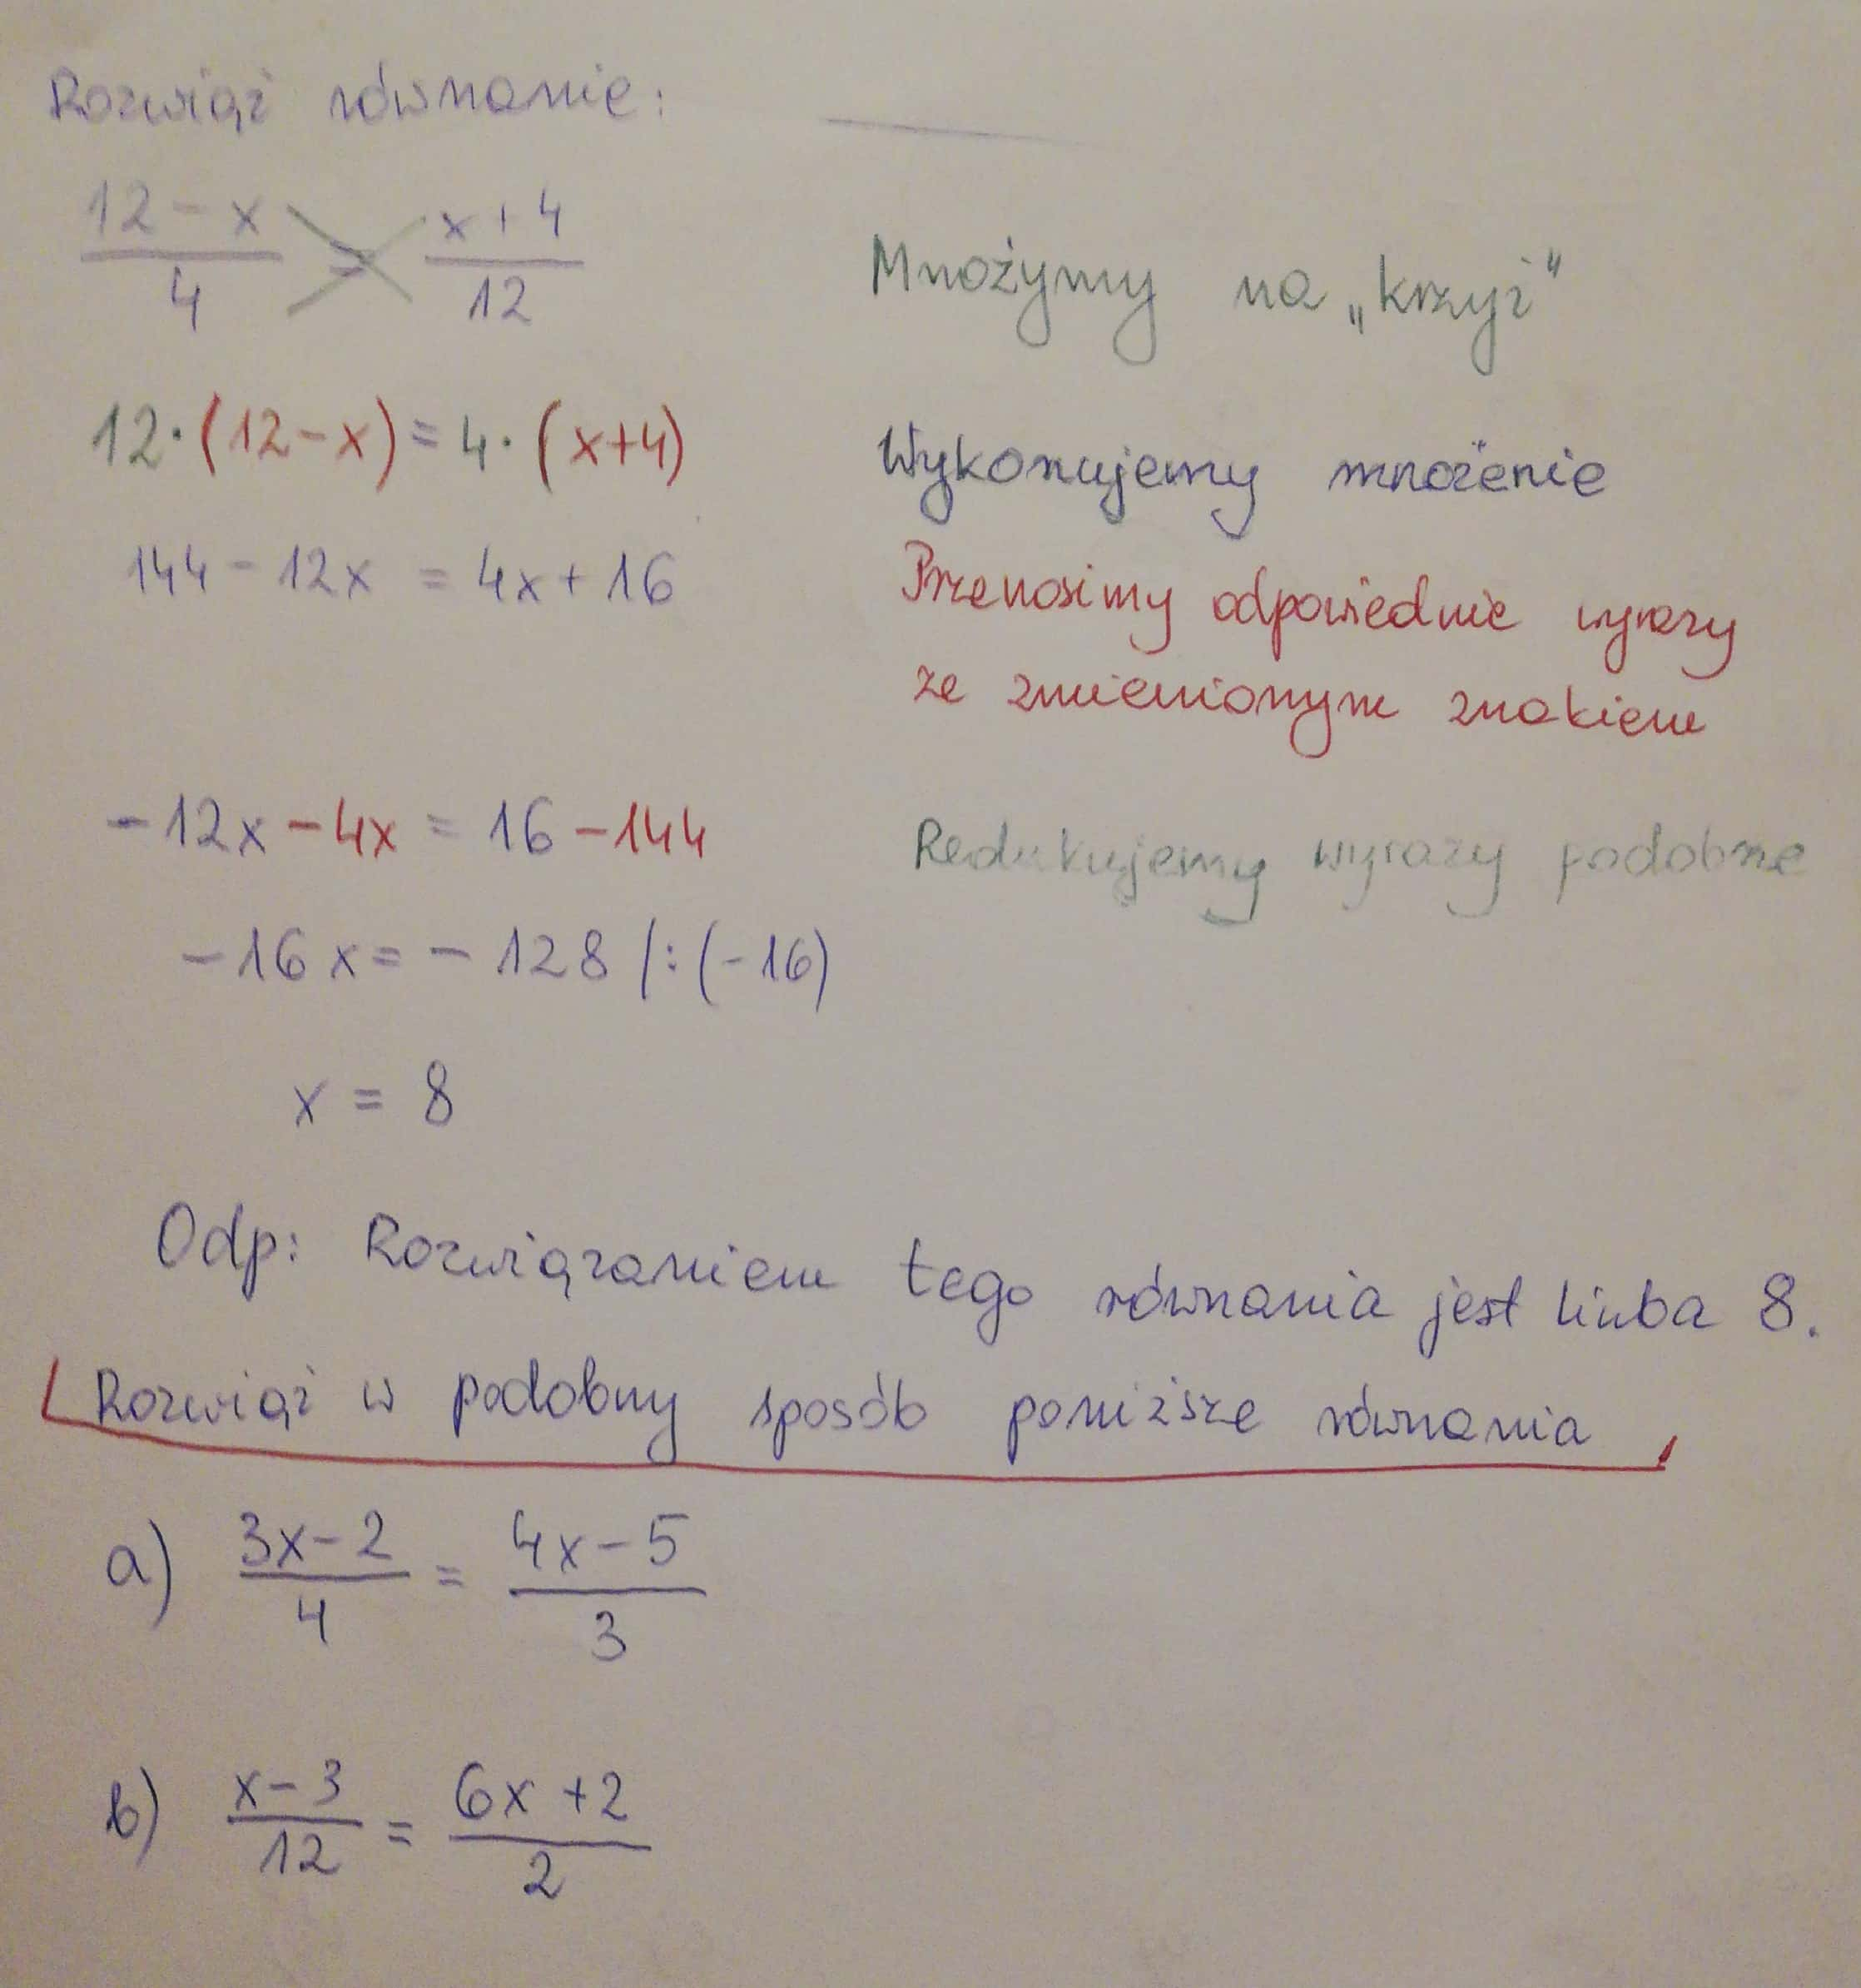 Rozwiąż równanie:
12 - x / 4 = x + 4 / 12 Mnożymy na „krzyż"
12·(12-x) = 4·(x+4) Wykonujemy mnożenie
144 - 12x = 4x + 16 Przenosimy odpowiednie wyrazy
ze zmienionym znakiem
-12x - 4x = 16 - 144 Redukujemy wyrazy podobne
-16x = -128 /:(-16)
x = 8
Odp: Rozwiązaniem tego równania jest liczba 8.
Rozwiąż w podobny sposób poniższe równania
a) 3x-2 / 4 = 4x-5 / 3
b) x-3 / 12 = 6x+2 / 2